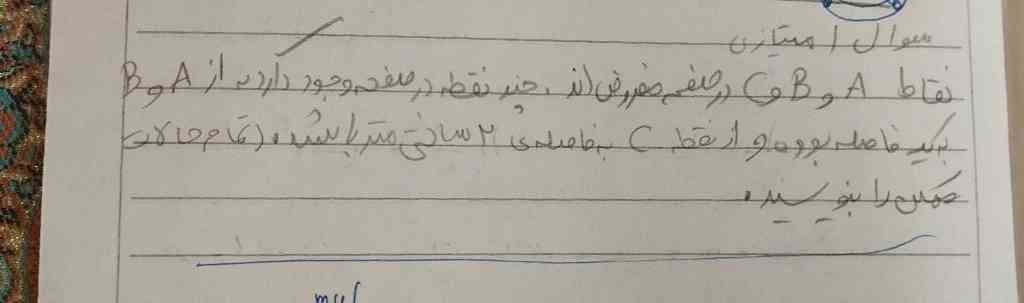 سوال امتیازی
نقاط A و B و C در صفحه مفروض اند. چند نقطه در صفحه وجود دارد که از A و B
به یک فاصله بوده و از نقطه C به فاصله‌ی ۲ سانتی متر باشد. (تمام حالات
ممکن را بنویسید.